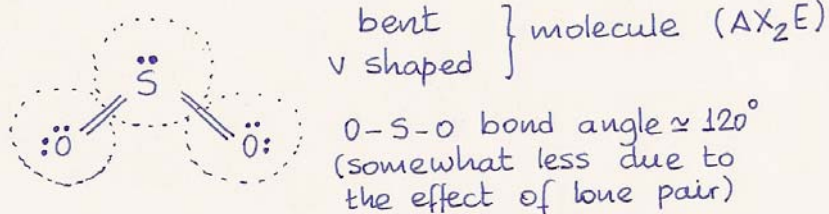 bent
v shaped } molecule (AX₂E)
S
:Ö Ö:
O-S-O bond angle ≃ 120°
(somewhat less due to
the effect of lone pair)